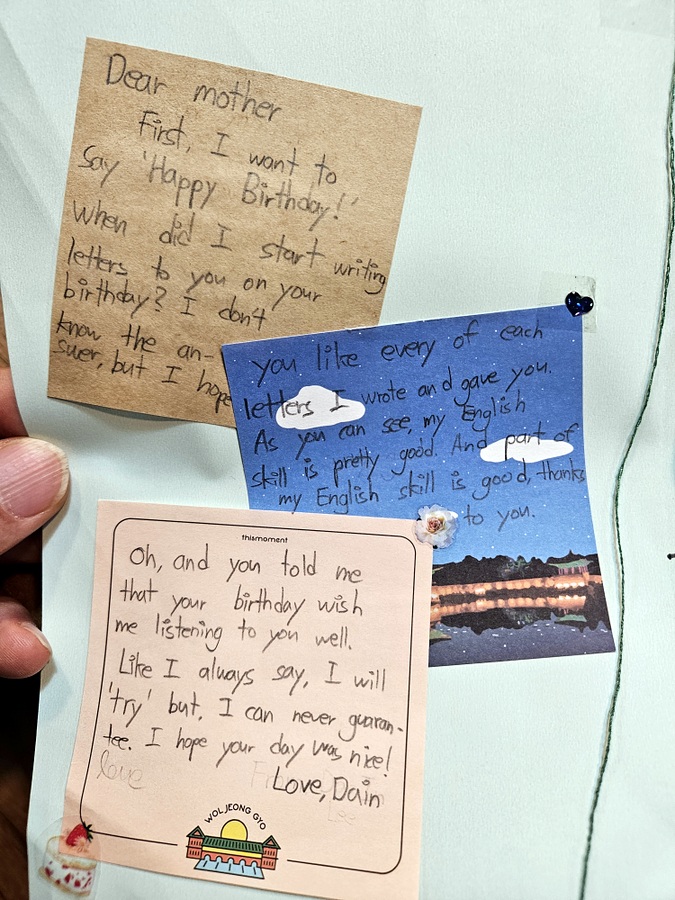 Dear mother
First, I want to
say 'Happy Birthday!'
When did I start writing
letters to you on your
birthday? I don't
know the an-
swer, but I hope
you like every of each
letters I wrote and gave you.
As you can see, my English
skill is pretty good. And part of
my English skill is good, thanks
to you.
thismoment
Oh, and you told me
that your birthday wish
me listening to you well.
Like I always say, I will
'try' but, I can never guaran-
tee. I hope your day was nice!
love
Love, Dain
Lee
WOLJEONG GYO